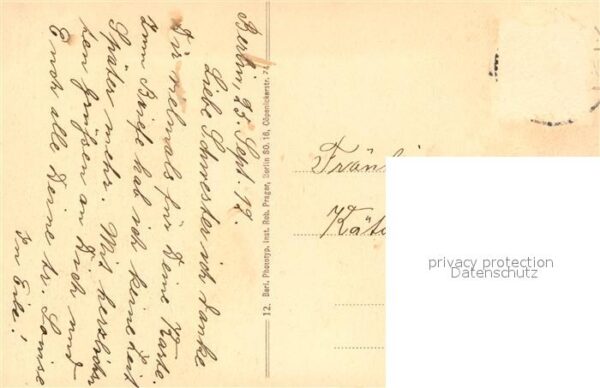 Berlin, 25. Sept. 19.
Liebe Schwester ich danke
Dir vielmals für Deine Karte.
zum Briefe hab ich keine Zeit
Später mehr. Mit herzlichs
ten Grüßen an Dich und
Euch alle Deine tr. Louise
In Eile!
12. Berl. Phototyp. Inst. Rob. Prager, Berlin SO. 16, Cöpenickerstr. 74
Fräul
Kät
privacy protection
Datenschutz